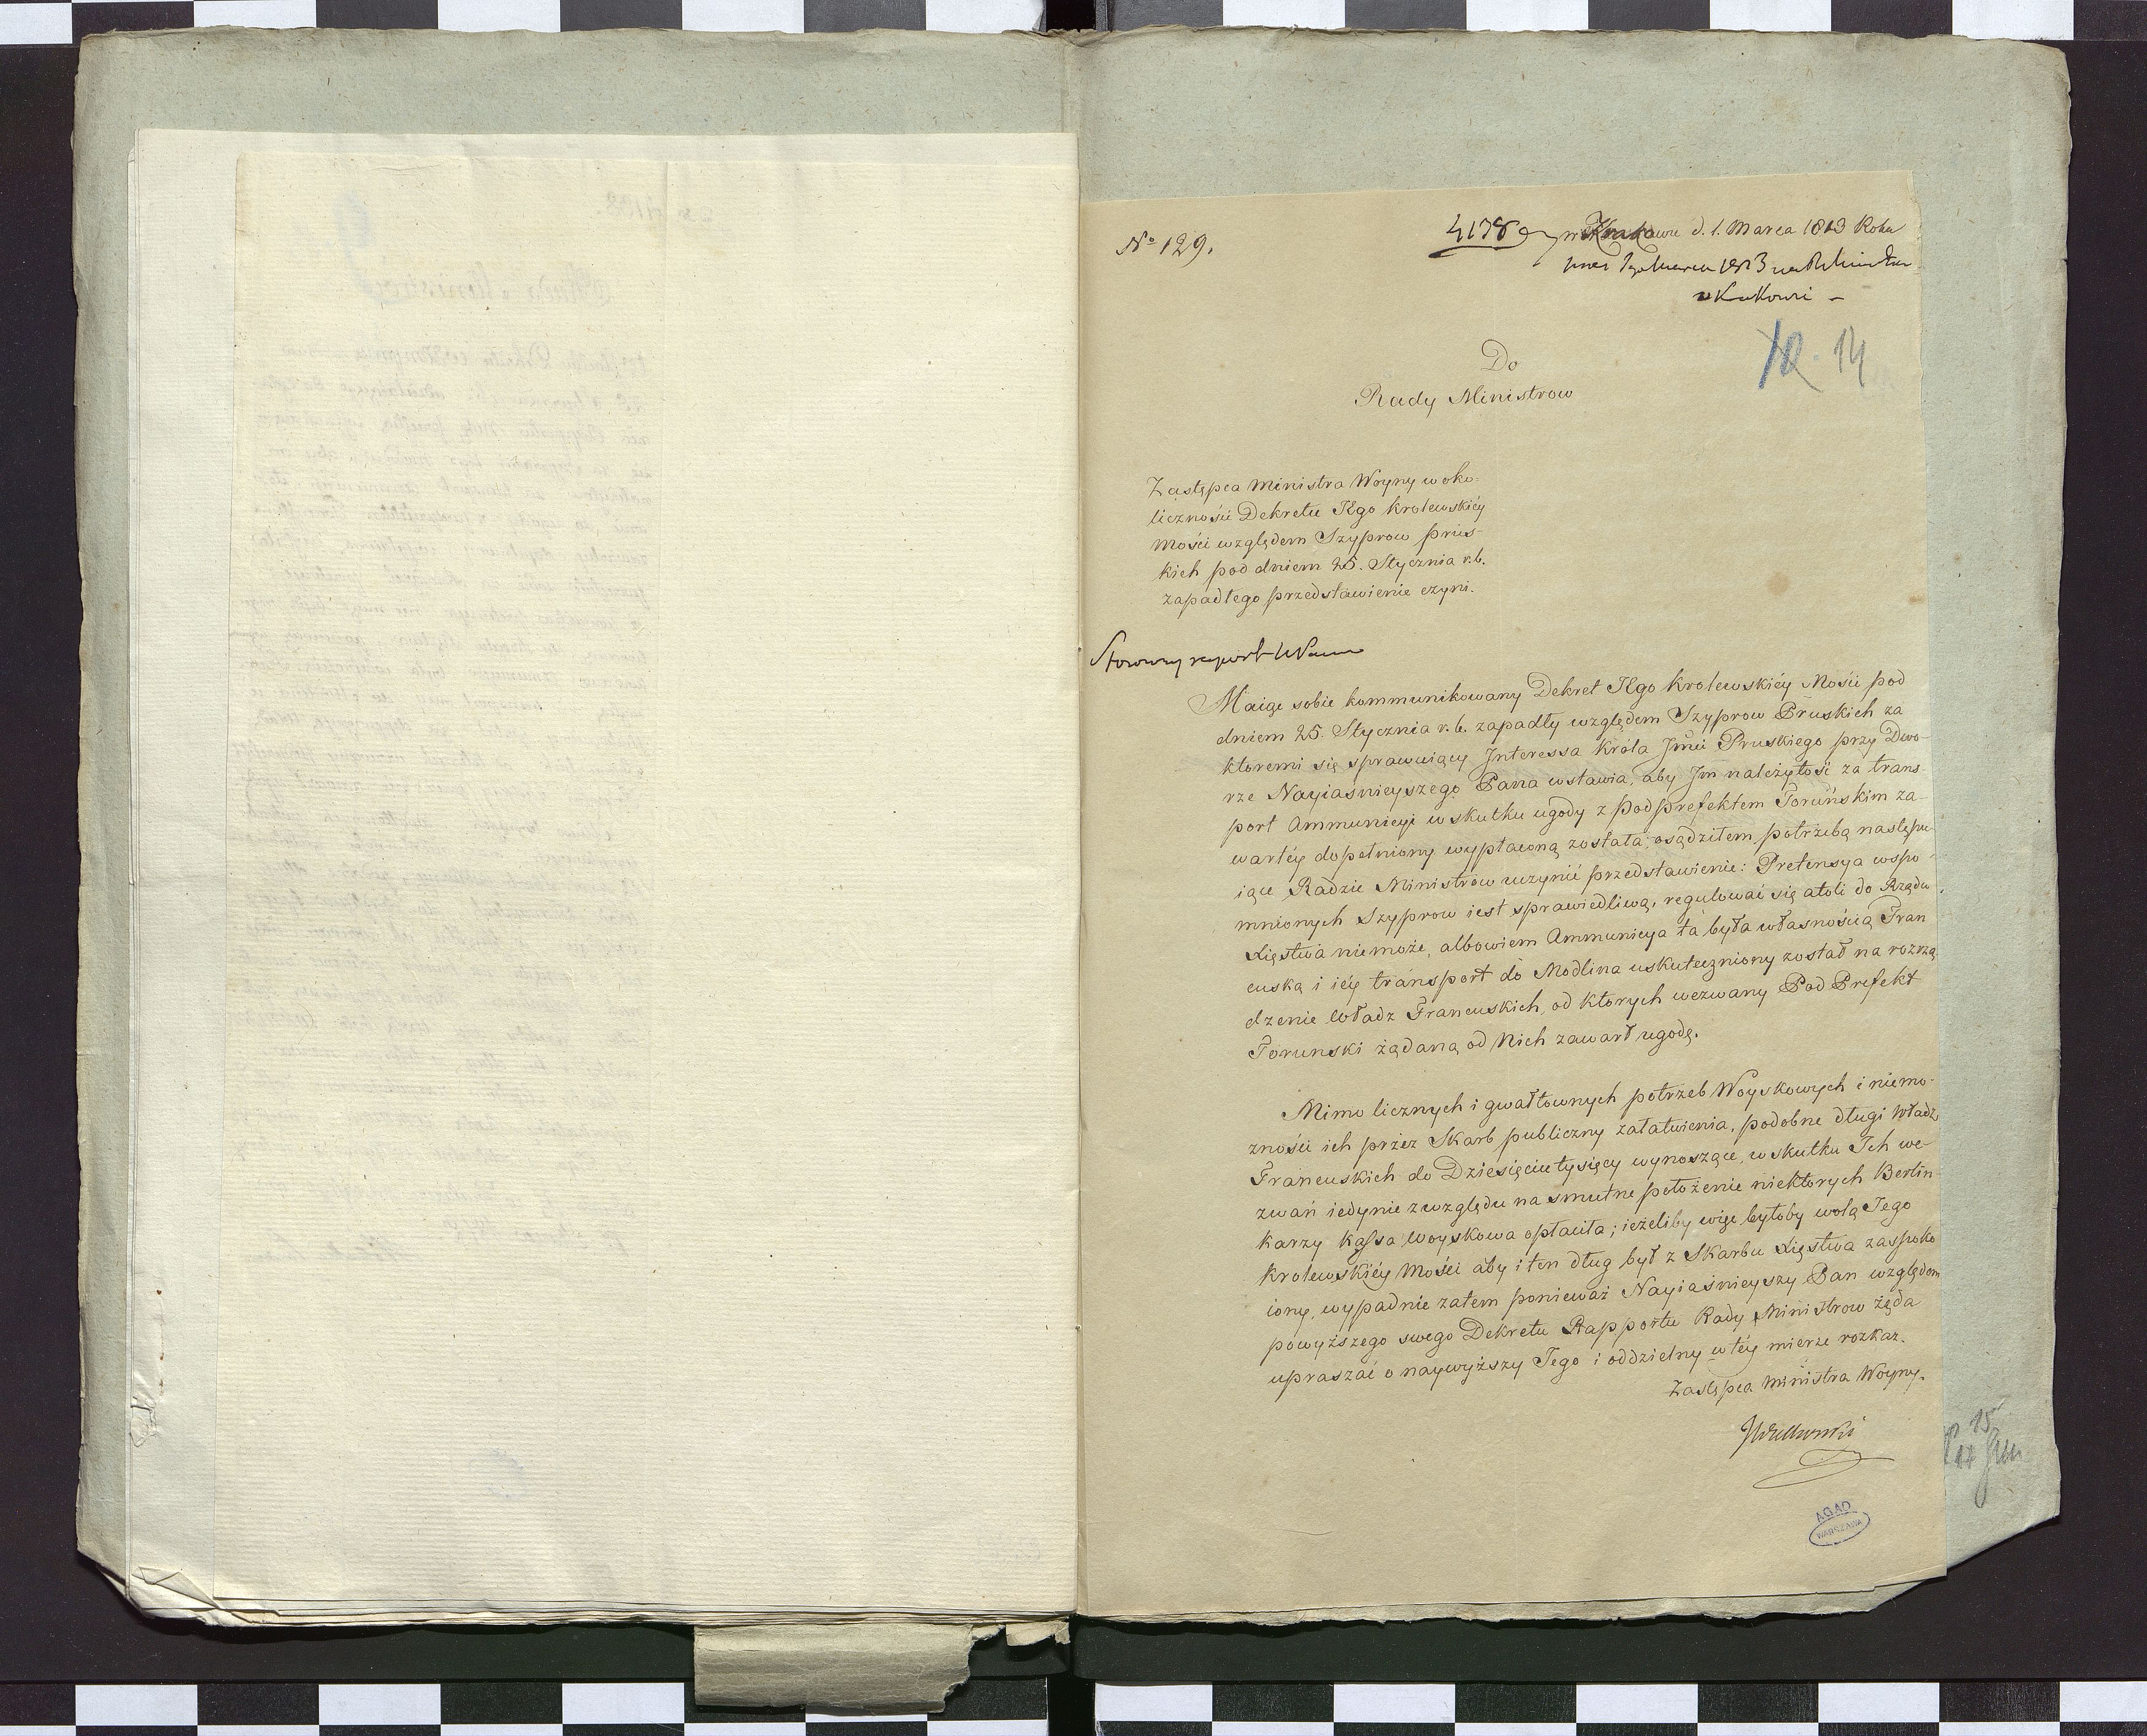 No 129.
4178
w Krakowie d. 1. Marca 1813 Roku
Marca 1813
w Krakowie
14
Do
Rady Ministrow
Zastępca Ministra Woyny w oko-
liczności Dekretu JKgo Krolewskiéy
Mości względem Szyprow prus-
kich pod dniem 25. Stycznia r.b.
zapadłego przedstawienie czyni.
Stosowny raport
Maiąc sobie kommunikowany Dekret JKgo Krolewskiéy Mości pod
dniem 25. Stycznia r.b. zapadły względem Szyprow Pruskich za
ktoremi się sprawuiący Interessa Króla Jmci Pruskiego przy Dwo-
rze Nayiaśnieyszego Pana wstawia, aby Im należytość za trans-
port Ammunicyi w skutku ugody z Podprefektem Toruńskim za-
wartéy dopełniony wypłaconą została; osądziłem potrzebą następu-
iące Radzie Ministrow uczynić przedstawienie: Pretensya wspo-
mnionych Szyprow iest sprawiedliwą, regulować się atoli do Rządu
Xięstwa niemoże, albowiem Ammunicya ta była własnością Fran
cuską i iéy transport do Modlina uskuteczniony został na rozrzą
dzenie Władz Francuskich, od ktorych wezwany Pod Prefekt
Torunski żądaną od Nich zawarł ugodę.
Mimo licznych i gwałtownych potrzeb Woyskowych i niemo-
zności ich przez Skarb publiczny załatwienia, podobne długi Władz
Francuskich do Dziesięciu tysięcy wynoszące, w skutku Ich we-
zwań iedynie z względu na smutne położenie niektorych Berlin-
karzy Kassa Woyskowa opłaciła; ieżeliby więc byłoby wolą Jego
Krolewskiéy Mości aby i ten dług był z Skarbu Xięstwa zaspoko
iony, wypadnie zatem ponieważ Nayiaśnieyszy Pan względem
powyższego swego Dekretu Rapportu Rady Ministrow żąda
upraszać o naywyższy Jego i oddzielny w téy mierze rozkaz.
Zastępca Ministra Woyny.
AGAD
WARSZAWA
15